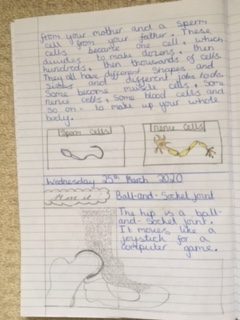 from your mother and a sperm
cell from your father. These
cells become one cell, which
divides to make dozens, then
hundreds, then thousands of cells.
They all have different shapes and
sizes and different jobs too.
Some become muscle cells, some
nerve cells, some blood cells and
so on - to make up your whole
body.
Sperm Cells
Nerve Cells
Wednesday 25th March 2020
Move it
Ball-and-Socket joint
The hip is a ball-
and-socket joint.
It moves like a
joystick for a
computer game.